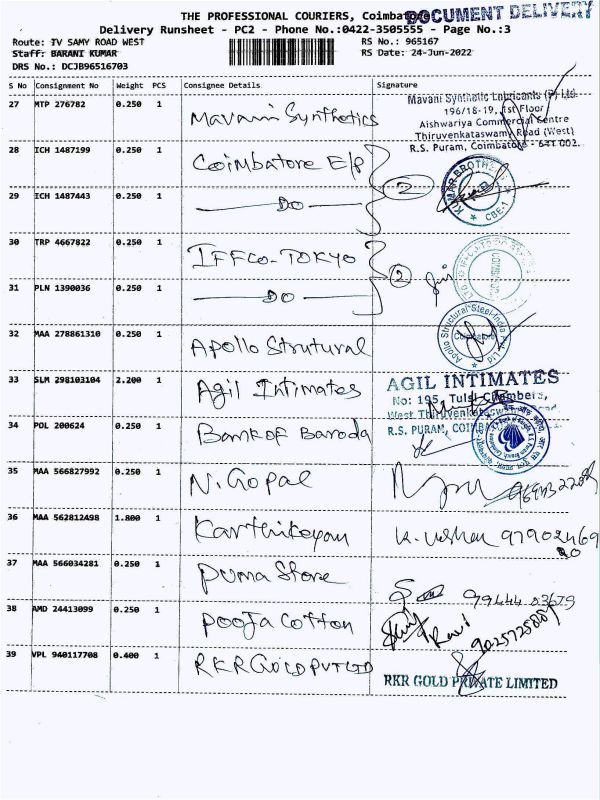 THE PROFESSIONAL COURIERS, Coimbatore
DOCUMENT DELIVERY
Delivery Runsheet - PC2 - Phone No.:0422-3505555 - Page No.:3
Route: TV SAMY ROAD WEST RS No.: 965167
Staff: BARANI KUMAR RS Date: 24-Jun-2022
DRS No.: DCJB96516703
S No Consignment No Weight PCS Consignee Details Signature
27 MTP 276782 0.250 1 Mavani Synthetics
Mavani Synthetic Lubricants (P) Ltd.
196/18-19, 1st Floor
Aishwariya Commercial Centre
Thiruvenkataswamy Road (West)
R.S. Puram, Coimbatore - 641 002.
28 ICH 1487199 0.250 1 Coimbatore E/P 2
KUMAR BROTHERS
CBE-1
29 ICH 1487443 0.250 1 DO
30 TRP 4667822 0.250 1 IFFCO-TOKYO 2
31 PLN 1390036 0.250 1 DO
32 MAA 278861310 0.250 1 Apollo Strutural
Apollo Structural Steel India Pvt Ltd
Coimbatore
33 SLM 298103104 2.200 1 Agil Intimates
AGIL INTIMATES
No: 195, Tulsi Chambers,
West Thiruvenkatasw
R.S. PURAM, COIMBA
34 POL 200624 0.250 1 Bank of Baroda
35 MAA 566827992 0.250 1 N. Gopal
36 MAA 562812498 1.800 1 Karthikeyan K. 97902469
20
37 MAA 566034281 0.250 1 Puma Store 99444 03679
38 AMD 24413099 0.250 1 Pooja Cotton Ravi
39 VPL 940117708 0.400 1 RKR GOLD PVT LTD
RKR GOLD PRIVATE LIMITED